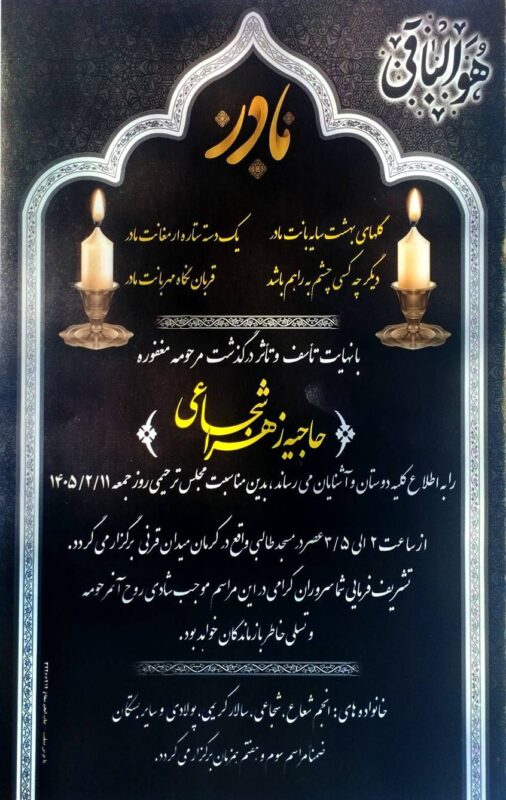 هو الباقی
مادر
گلهای بهشت سایه بانت مادر یک دسته ستاره ارمغانت مادر
دیگر چه کسی چشم به راهم باشد قربان نگاه مهربانت مادر
با نهایت تأسف و تأثر درگذشت مرحومه مغفوره
حاجیه زهرا شجاعی
را به اطلاع کلیه دوستان و آشنایان می رساند، بدین مناسبت مجلس ترحیمی روز جمعه ۱۴۰۵/۲/۱۱
از ساعت ۲ الی ۳/۵ عصر در مسجد طالبی واقع در کرمان میدان قرنی برگزار می گردد.
تشریف فرمایی شما سروران گرامی در این مراسم موجب شادی روح آنمرحومه
و تسلی خاطر بازماندگان خواهد بود.
خانواده های: انجم شعاع، شجاعی، سالار کریمی، پولادی و سایر بستگان
ضمنا مراسم سوم و هفتم همزمان برگزار می گردد.